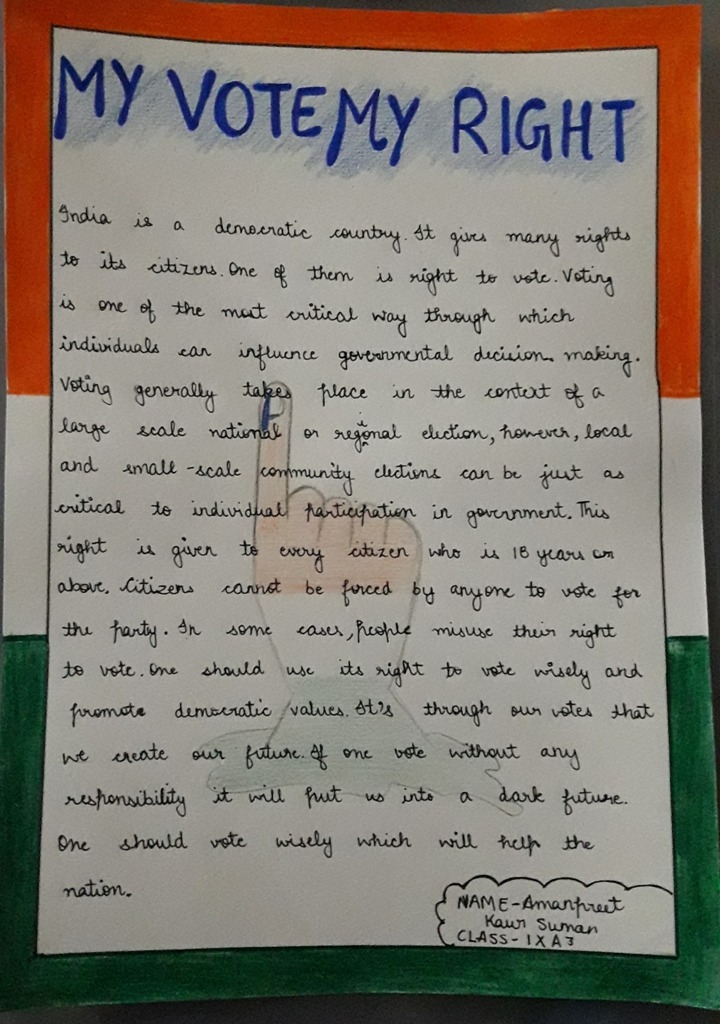 MY VOTE MY RIGHT
India is a democratic country. It gives many rights
to its citizens. One of them is right to vote. Voting
is one of the most critical way through which
individuals can influence governmental decision making.
Voting generally takes place in the context of a
large scale national or regional election, however, local
and small-scale community elections can be just as
critical to individual participation in government. This
right is given to every citizen who is 18 years or
above. Citizens cannot be forced by anyone to vote for
the party. In some cases, people misuse their right
to vote. One should use its right to vote wisely and
promote democratic values. It's through our votes that
we create our future. If one vote without any
responsibility it will put us into a dark future.
One should vote wisely which will help the
nation.
NAME-Amanpreet
Kaur Suman
CLASS-IX A3